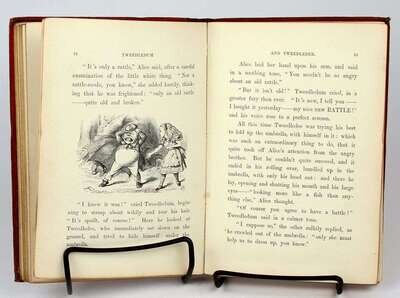 TWEEDLEDUM
"It's only a rattle," Alice said, after a careful
examination of the little white thing. "Not a
rattle-snake, you know," she added hastily, think-
ing that he was frightened: "only an old rattle
—quite old and broken."
"I knew it was!" cried Tweedledum, begin-
ning to stamp about wildly and tear his hair.
"It's spoilt, of course!" Here he looked at
Tweedledee, who immediately sat down on the
ground, and tried to hide himself under the
umbrella.
AND TWEEDLEDEE.
Alice laid her hand upon his arm, and said
in a soothing tone, "You needn't be so angry
about an old rattle."
"But it isn't old!" Tweedledum cried, in a
greater fury than ever. "It's new, I tell you—
I bought it yesterday—my nice new RATTLE!"
and his voice rose to a perfect scream.
All this time Tweedledee was trying his best
to fold up the umbrella, with himself in it: which
was such an extraordinary thing to do, that it
quite took off Alice's attention from the angry
brother. But he couldn't quite succeed, and it
ended in his rolling over, bundled up in the
umbrella, with only his head out: and there he
lay, opening and shutting his mouth and his large
eyes—"looking more like a fish than any-
thing else," Alice thought.
"Of course you agree to have a battle?"
Tweedledum said in a calmer tone.
"I suppose so," the other sulkily replied, as
he crawled out of the umbrella: "only she must
help us to dress up, you know."